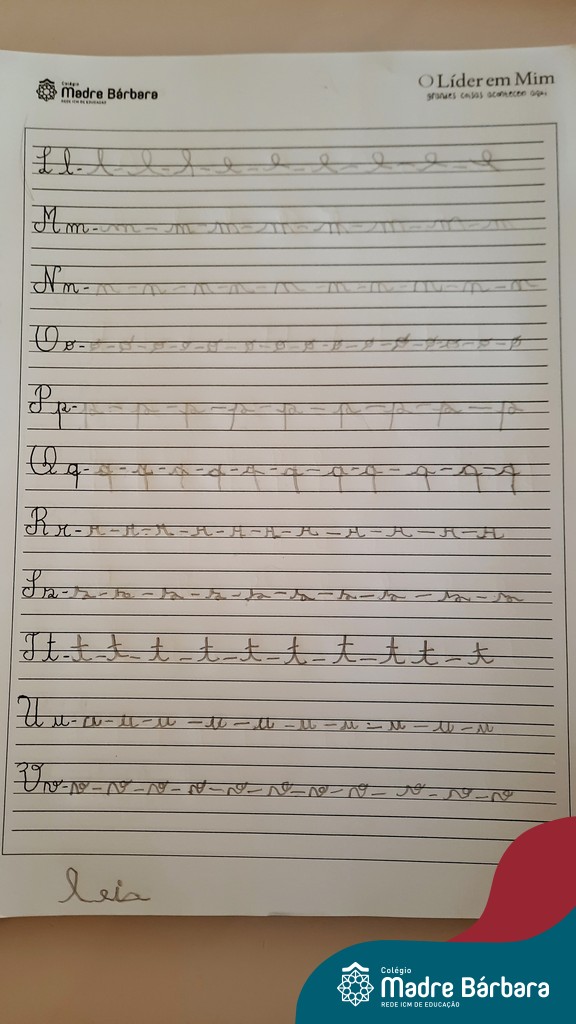 Colégio
Madre Bárbara
REDE ICM DE EDUCAÇÃO
O Líder em Mim
grandes coisas acontecem aqui
L l - l - l - l - e - e - e - e - e - e
M m - m - m - m - m - m - m - m - m
N n - n - n - n - n - n - n - n - n - n - n
O o - o - o - o - o - o - o - o - o - o - o - o - o - o - o
P p - p - p - p - p - p - p - p - p - p
Q q - q - q - q - q - q - q - q - q - q - q - q
R r - r - r - r - r - r - r - r - r - r - r - r
S s - s - s - s - s - s - s - s - s - s - s
T t - t - t - t - t - t - t - t - t - t - t
U u - u - u - u - u - u - u - u - u - u - u
V v - v - v - v - v - v - v - v - v - v - v
leis
Colégio
Madre Bárbara
REDE ICM DE EDUCAÇÃO